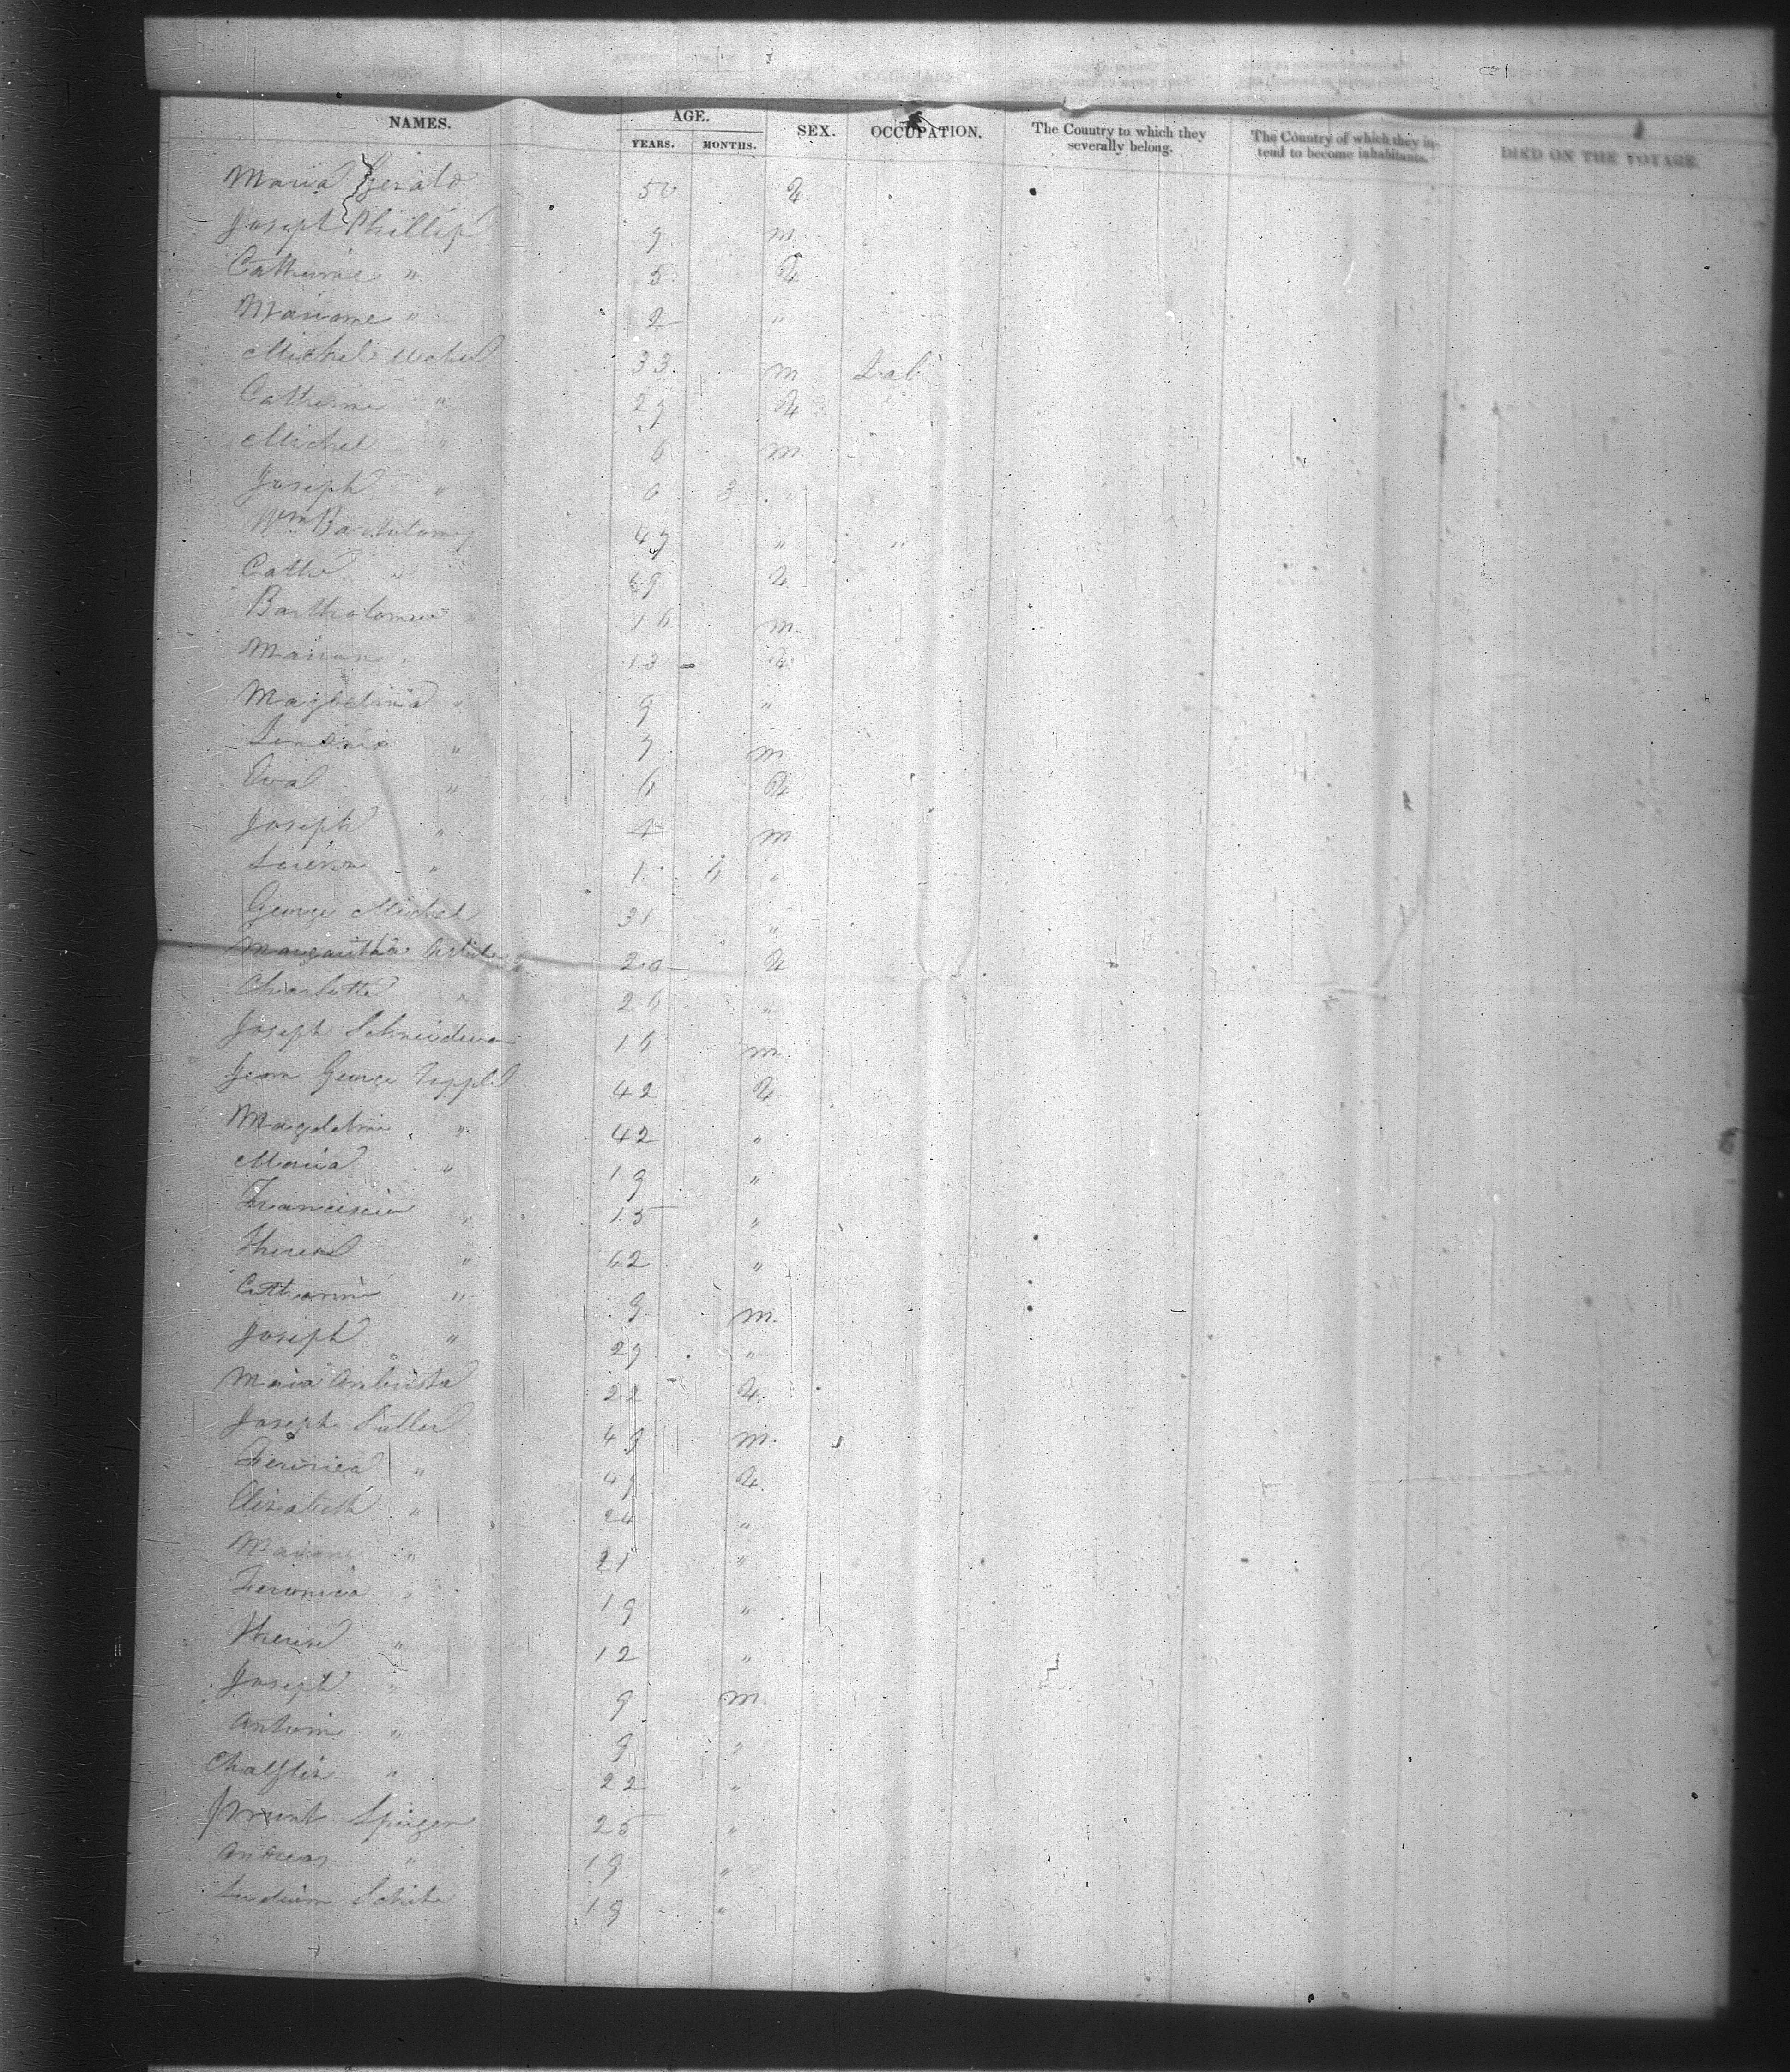 NAMES. AGE. YEARS. MONTHS. SEX. OCCUPATION. The Country to which they severally belong. The Country of which they intend to become inhabitants. DIED ON THE VOYAGE.
Maria Gerald 50 F
Joseph Phillip 9 m
Catherine " 5 F
Mariane " 2 "
Michel Michel 33 m Lab
Catherine " 29 F
Michel " 6 m
Joseph " 0 3 "
Wm Bartolomy 47 " "
Cathe " 49 F
Bartholomew " 16 m
Marian " 13 F
Magdelina " 9 "
" 7 m
Eval " 6 F
Joseph " 4 m
" 1 6 "
George Michel 31 "
Margaritha 20 F
Charlotte " 26 "
Joseph Schneider 15 m
Jean George Toppel 42 F
Magdelina " 42 "
Maria " 19 "
Franciscia " 15 "
Therese " 12 "
Catharine " 9 m
Joseph " 29 "
Maria 22 F
Joseph 49 m
Feronica " 49 F
Elisabeth " 24 "
Mariane " 21 "
Feronica " 19 "
Therese " 12 "
Joseph " 9 m
Antoin " 9 "
" 22 "
Speigen 25 "
Andreas " 19 "
19 "